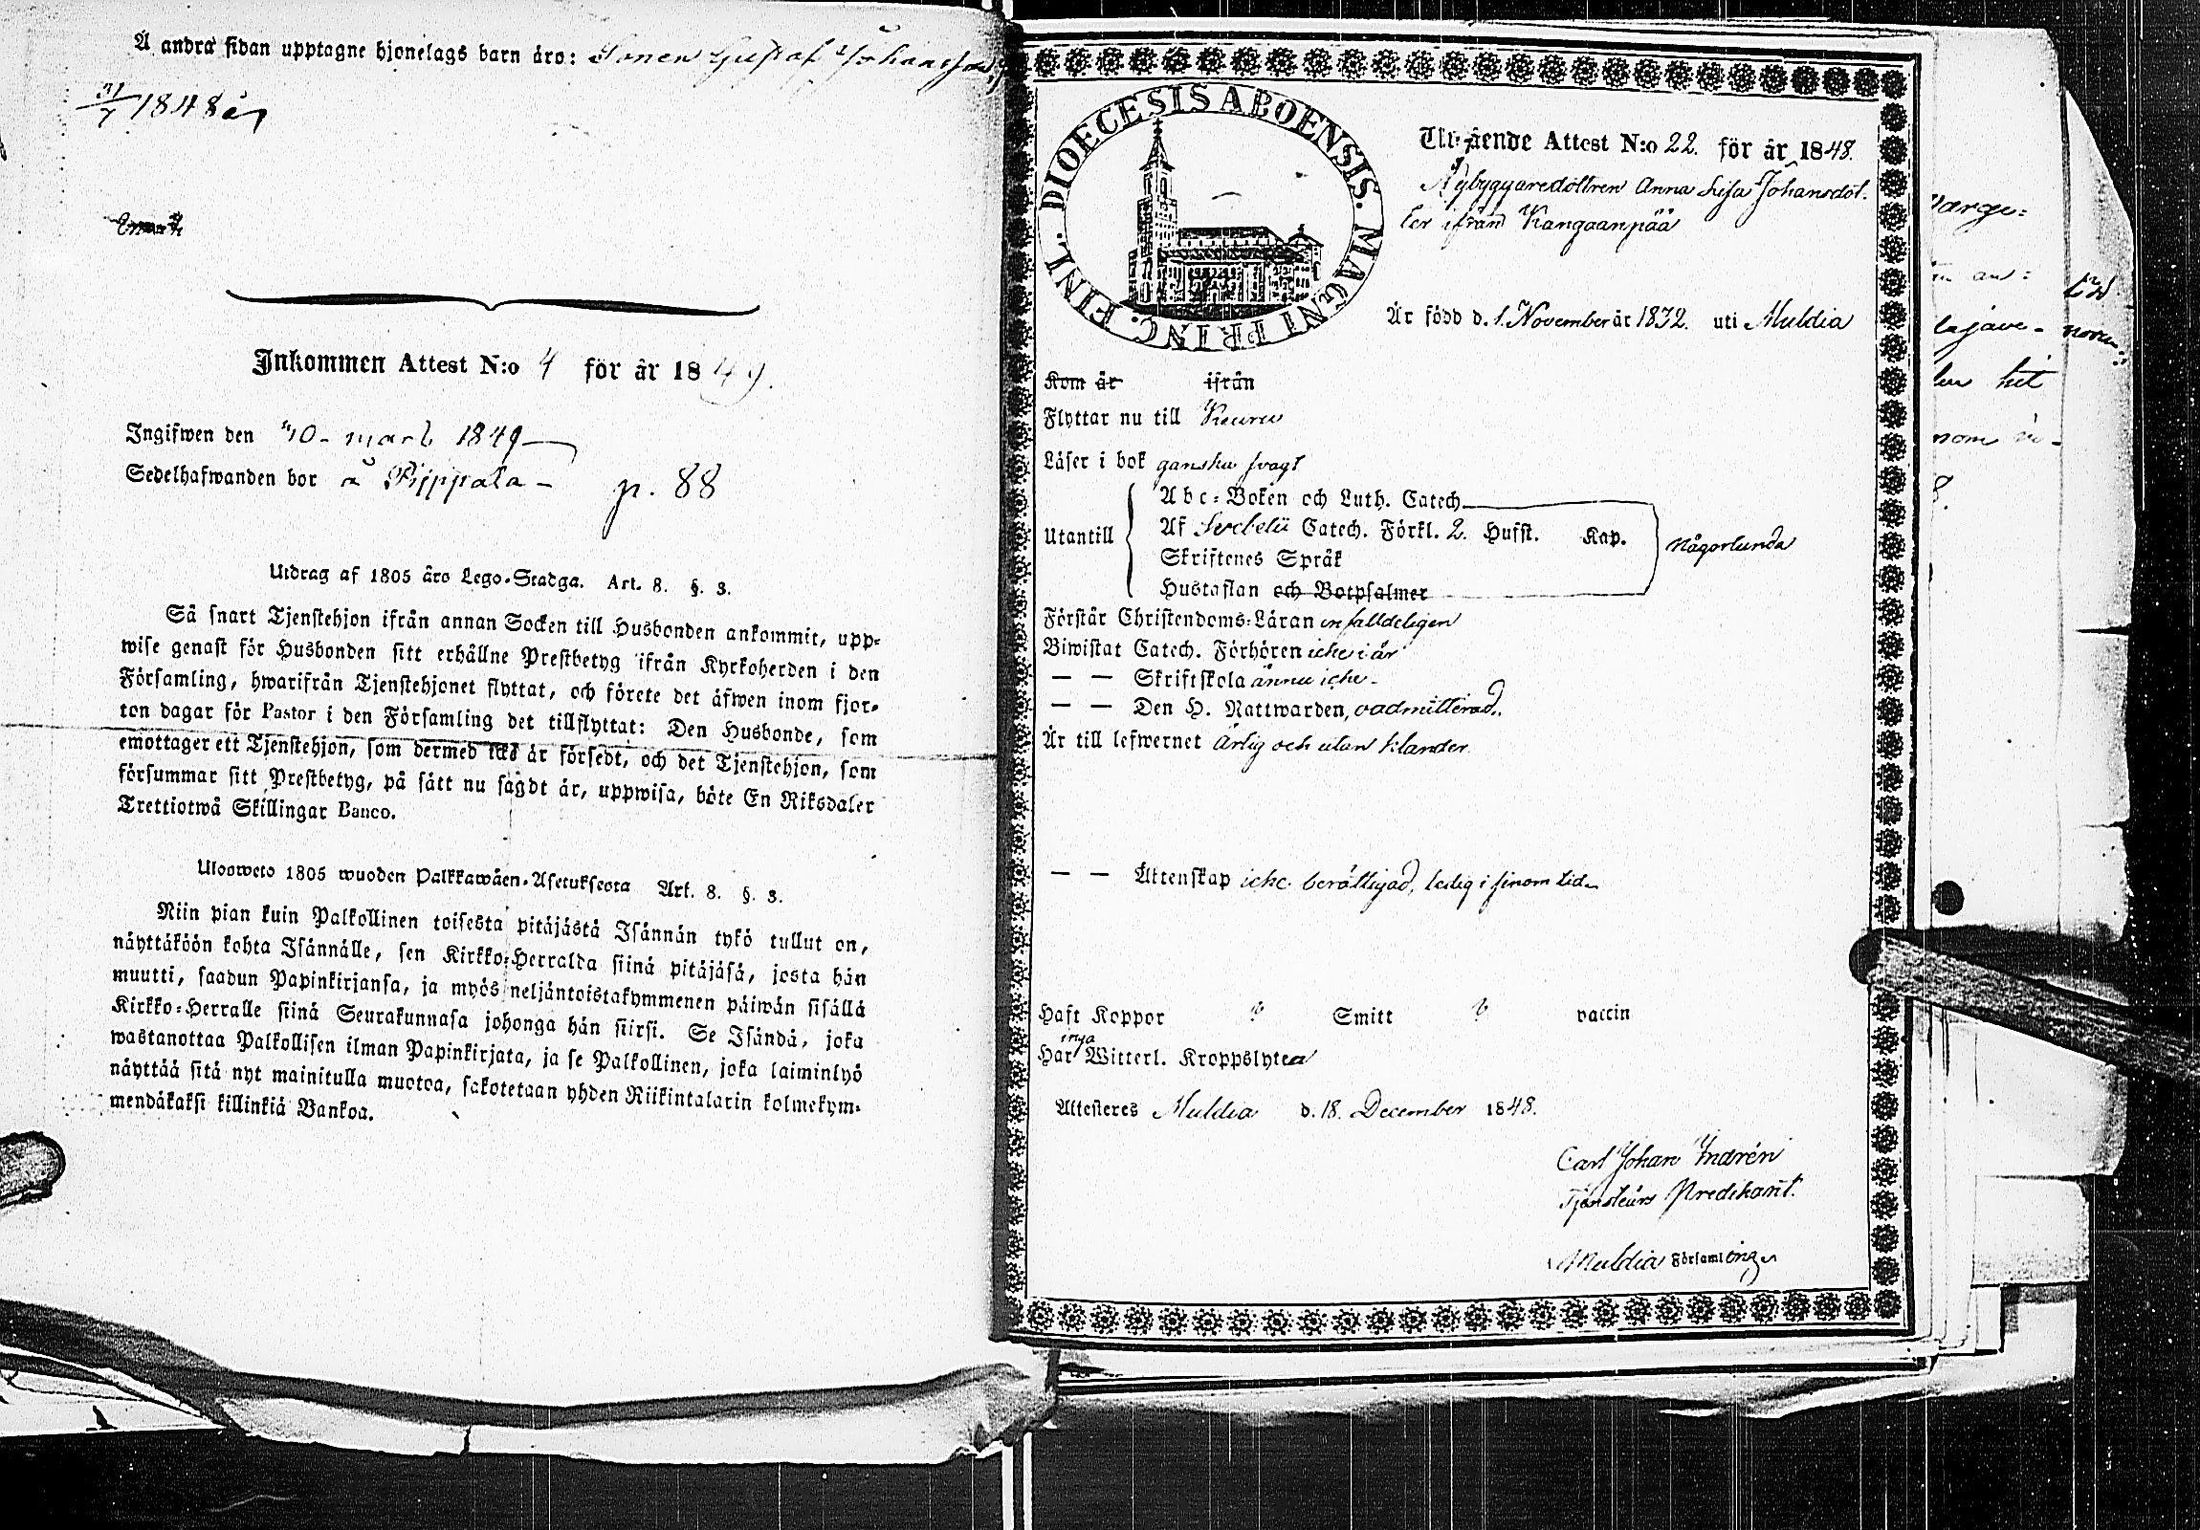 Å andra sidan upptagne hjonelags barn äro: Sonen Gustaf Johansson
31/7 1848
Inkommen Attest N:o 4 för år 1849.
Ingifwen den 10 mart 1849
Sedelhafwanden bor å Pijppala - p. 88
Utdrag af 1805 års Lego-Stadga. Art. 8. §. 3.
Så snart Tjenstehjon ifrån annan Socken till Husbonden ankommit, upp-
wise genast för Husbonden sitt erhållne Prestbetyg ifrån Kyrkoherden i den
Församling, hwarifrån Tjenstehjonet flyttat, och förete det äfwen inom fjor-
ton dagar för Pastor i den Församling det tillflyttat: Den Husbonde, som
emottager ett Tjenstehjon, som dermed icke är försedt, och det Tjenstehjon, som
försummar sitt Prestbetyg, på sätt nu sagdt är, uppwisa, böte En Riksdaler
Trettiotwå Skillingar Banco.
Ulosweto 1805 wuoden Palkkawäen-Asetuksesta Art. 8. §. 3.
Niin pian kuin Palkollinen toisesta pitäjästä Isännän tykö tullut on,
näyttäköön kohta Isännälle, sen Kirkko-Herralda siinä pitäjäsä, josta hän
muutti, saadun Papinkirjansa, ja myös neljäntoistakymmenen päiwän sisällä
Kirkko-Herralle siinä Seurakunnasa johonga hän siirsi. Se Isändä, joka
wastanottaa Palkollisen ilman Papinkirjata, ja se Palkollinen, joka laiminlyö
näyttää sitä nyt mainitulla muotoa, sakotetaan yhden Riikintalarin kolmekym-
mendäkaksi killinkiä Bankoa.
DIOECESIS ABOENSIS. MAGNI PRINC. FINL.
Utgående Attest N:o 22. för år 1848.
Nybyggaredottren Anna Lisa Johansdot-
ter ifrån Kangaanpää
Är född d. 1. November år 1832. uti Muldia
Kom år ifrån
Flyttar nu till Keuru
Läser i bok ganska svagt
Abc-Boken och Luth. Catech.
Utantill Af Svebelii Catech. Förkl. 2. Hufst. Kap. någorlunda
Skriftenes Språk
Hustaflan och Botpsalmer
Förstår Christendoms-Läran enfalldeligen
Biwistat Catech. Förhören icke i år
— — Skriftskola ännu icke -
— — Den H. Nattwarden, oadmitterad.
Är till lefwernet ärlig och utan klander.
— — Äktenskap icke berättigad, ledig i sinom tid
Haft Koppor Smitt vaccin
Har inga Witterl. Kroppslyten
Attesteres Muldia d. 18. December 1848.
Carl Johan Indrén
Tjensteårs Predikant.
Muldia Församling